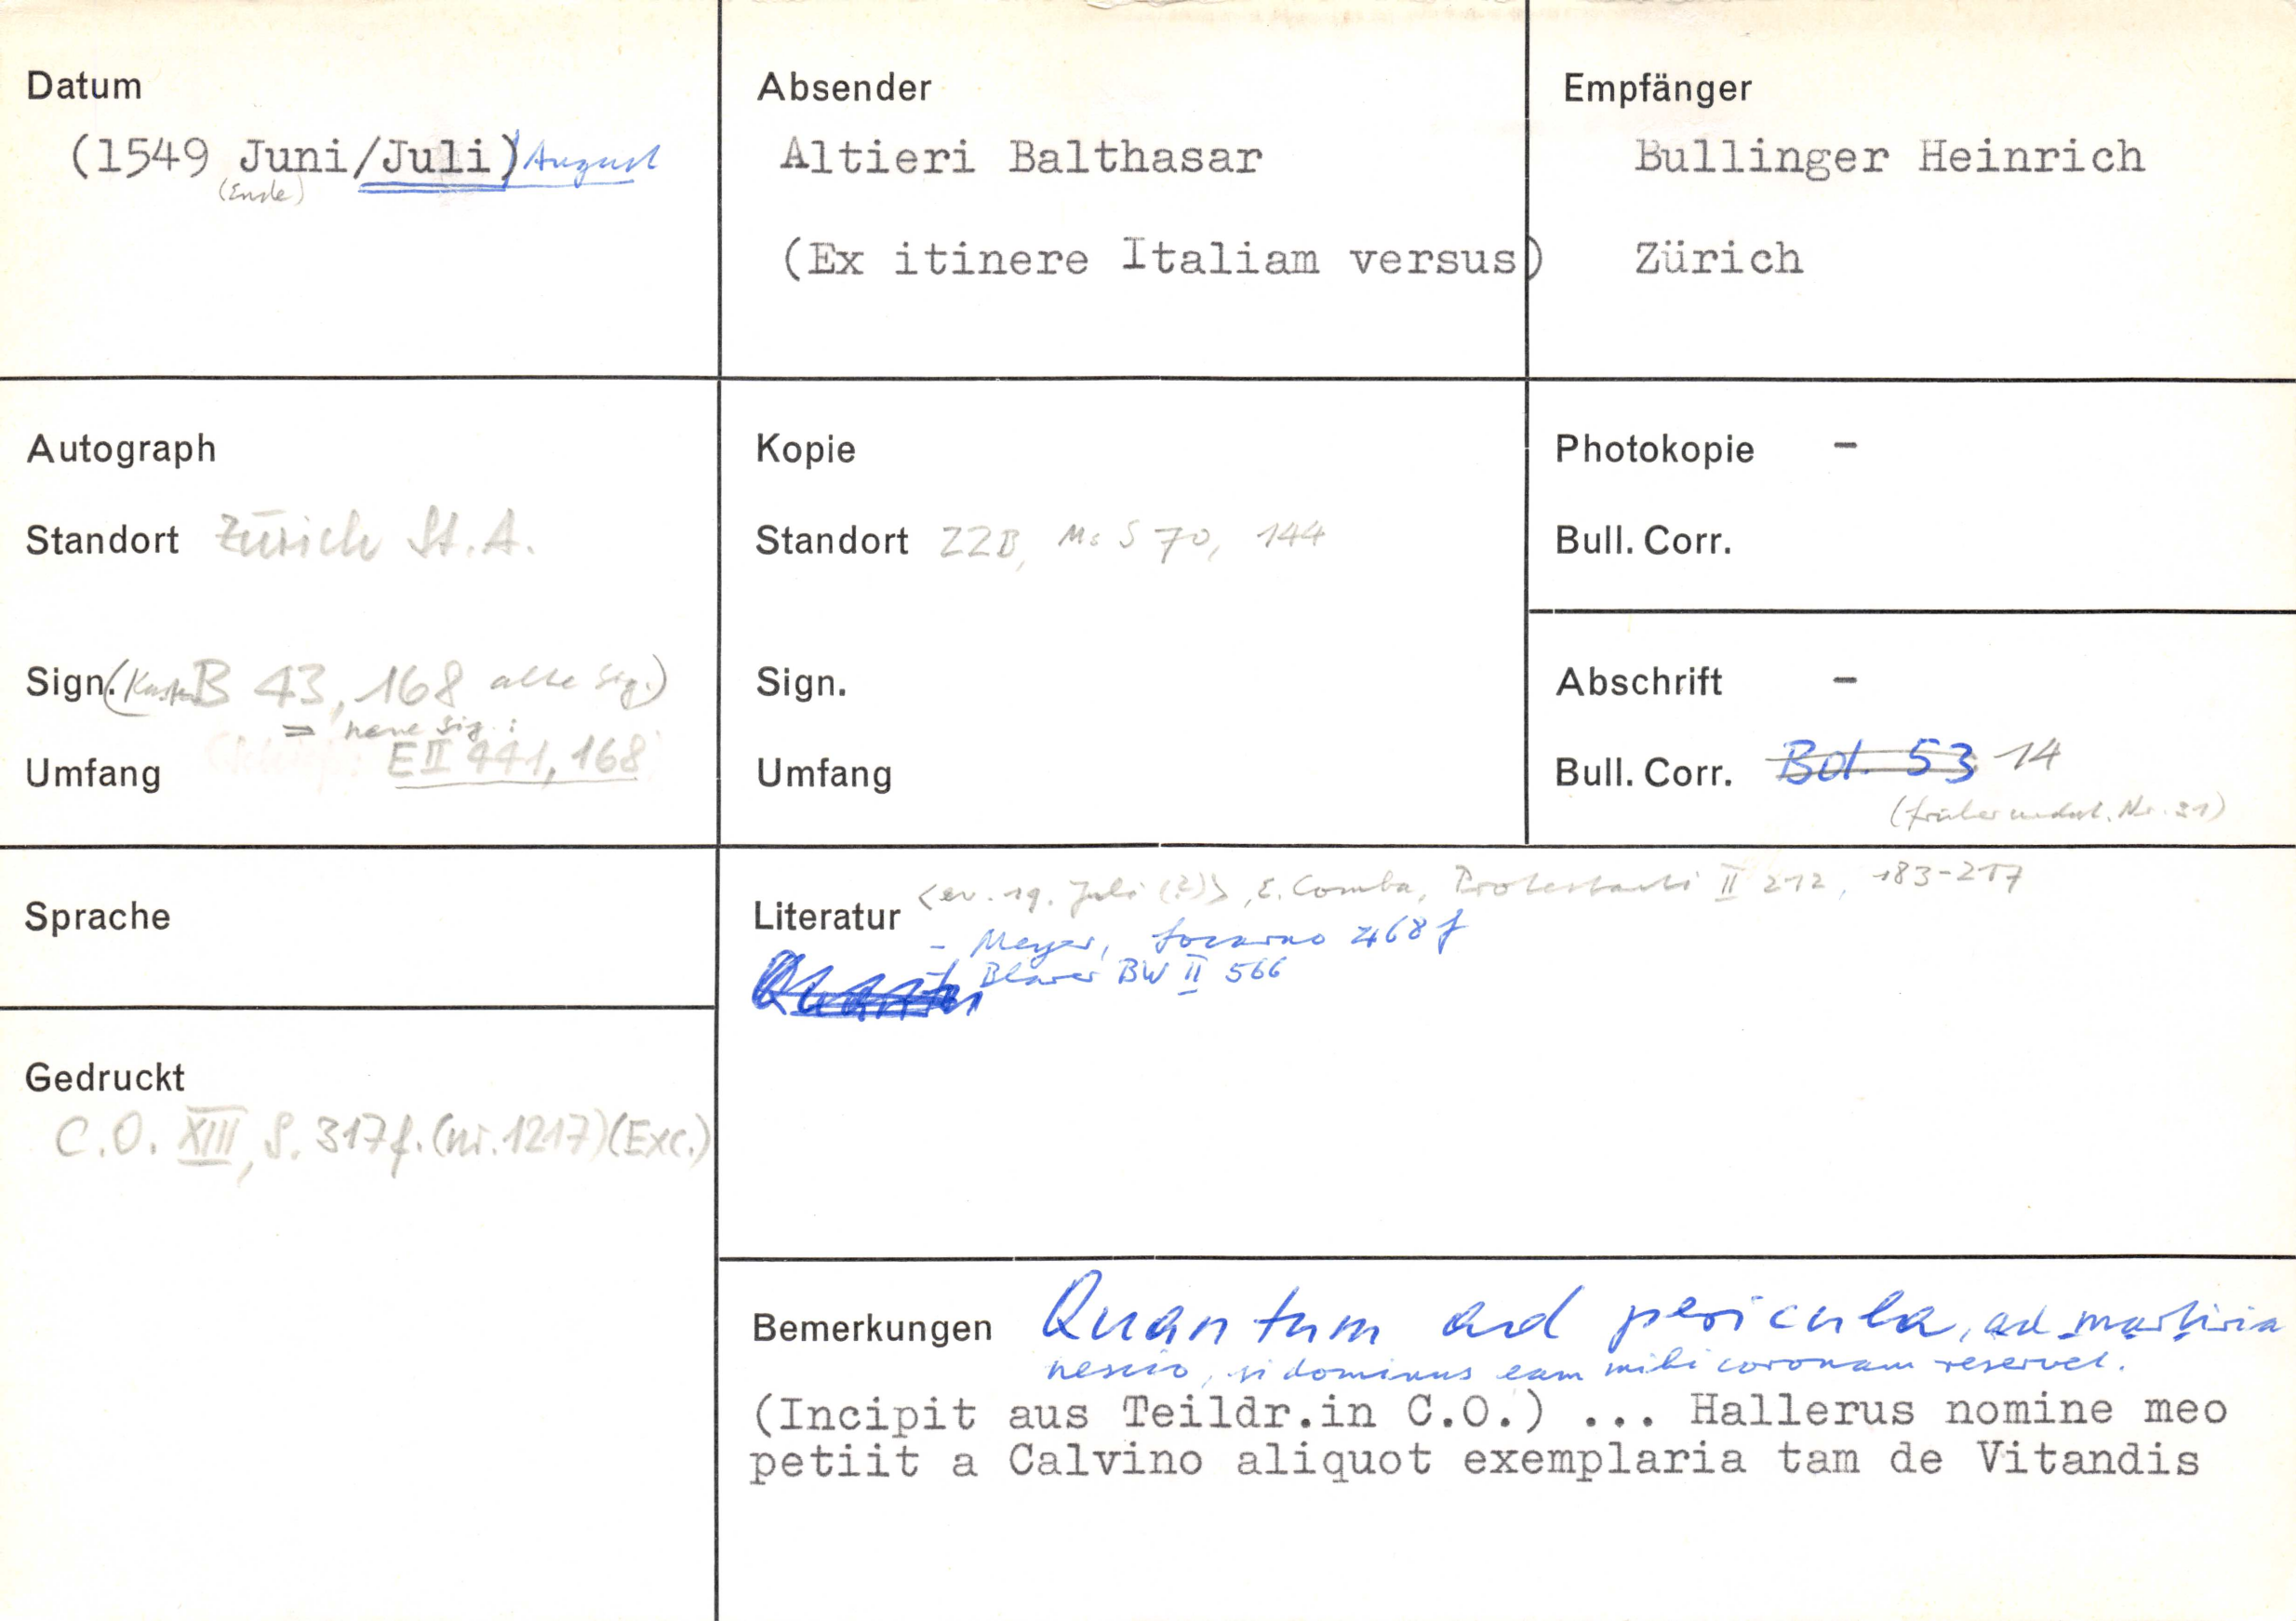 Datum
(1549 Juni/Juli) August
(Ende)
Absender
Altieri Balthasar
(Ex itinere Italiam versus)
Empfänger
Bullinger Heinrich
Zürich
Autograph
Standort Zürich St.A.
Sign. (Kasten B 43, 168 alte Sig.)
= neue Sig.:
Umfang E II 441, 168
Kopie
Standort ZZB, Ms S 70, 144
Sign.
Umfang
Photokopie -
Bull. Corr.
Abschrift -
Bull. Corr. Bd. 53 14
(früher undat. Nr. 21)
Sprache
Gedruckt
C.O. XIII, S. 317f. (nr. 1217) (Exc.)
Literatur <ev. 19. Juli (?)>, E. Comba, Protestanti II 212, 183-217
- Meyer, Locarno 468 f
- Blarer BW II 566
Bemerkungen Quantum ad pericula, ad martiria
nescio, si dominus eam mihi coronam reservet.
(Incipit aus Teildr.in C.O.) ... Hallerus nomine meo
petiit a Calvino aliquot exemplaria tam de Vitandis